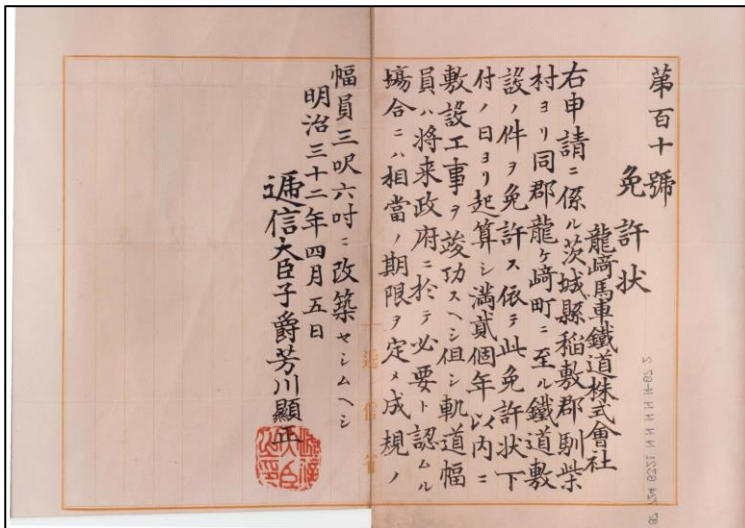 第百十號
免許状
龍﨑馬車鐵道株式會社
右申請ニ係ル茨城縣稲敷郡馴柴
村ヨリ同郡龍ヶ﨑町ニ至ル鐵道敷
設ノ件ヲ免許ス依テ此免許状下
付ノ日ヨリ起算シ満貳個年以内ニ
敷設工事ヲ竣功スヘシ但シ軌道幅
員ハ将来政府ニ於テ必要ト認ムル
塲合ニハ相當ノ期限ヲ定メ成規ノ
幅員三呎六吋ニ改築セシムヘシ
明治三十二年四月五日
遞信大臣子爵芳川顯正
遞信省